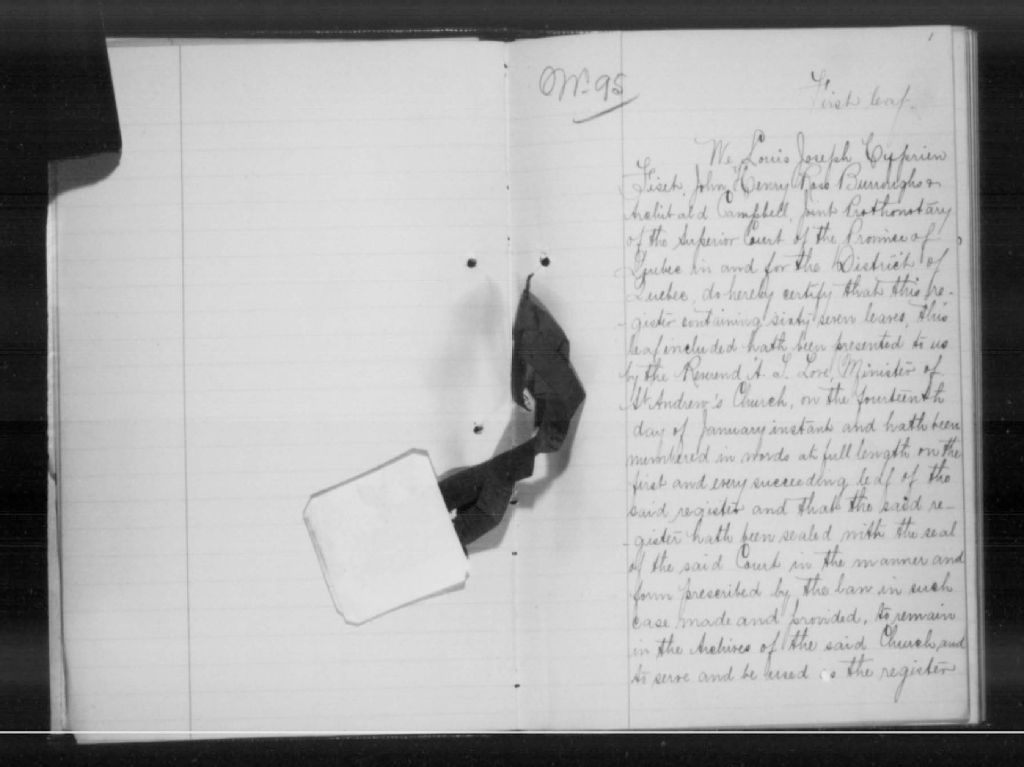 1
No. 95
First leaf.
We Louis Joseph Cyprien
Fiset, John Henry Ross Burroughs &
Archibald Campbell, Joint Prothonotary
of the Superior Court of the Province of
Quebec in and for the District of
Quebec, do hereby certify that this re-
-gister containing sixty seven leaves, this
leaf included hath been presented to us
by the Reverend A. T. Love, Minister of
St. Andrew's Church, on the fourteenth
day of January instant and hath been
numbered in words at full length on the
first and every succeeding leaf of the
said register and that the said re-
-gister hath been sealed with the seal
of the said Court in the manner and
form prescribed by the law in such
case made and provided, to remain
in the Archives of the said Church, and
to serve and be used as the register